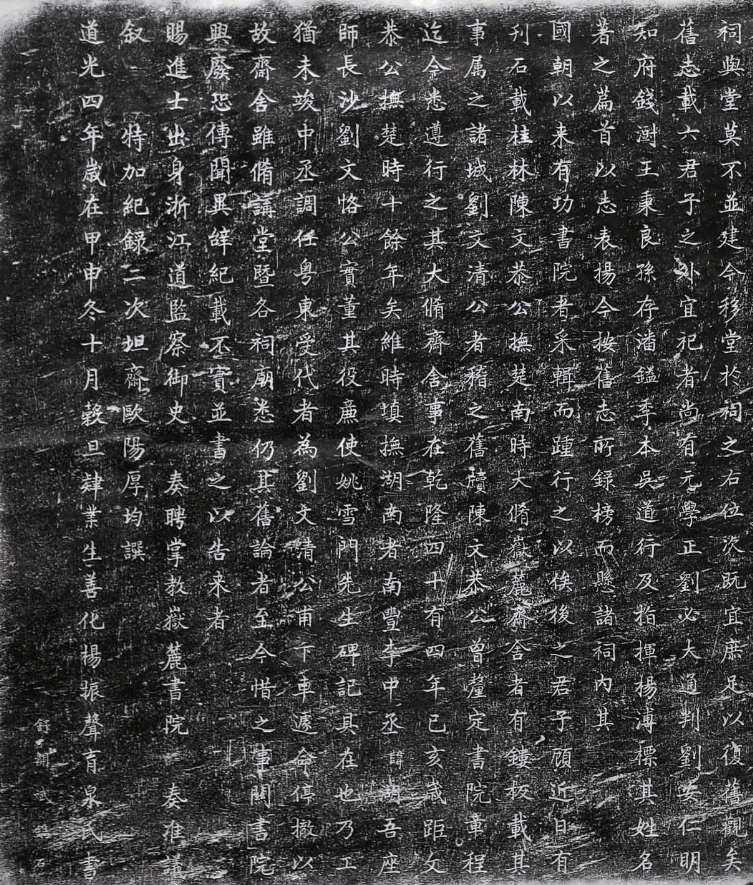 祠與堂莫不並建今移堂於祠之右位次既宜庶足以復舊觀矣
舊志載六君子之外宜祀者尚有元學正劉必大通判劉安仁明
知府錢澍王秉良孫存潘鎰季本吳道行及指揮楊溥標其姓名
著之篇首以志表揚今按舊志所錄榜而懸諸祠內其
國朝以来有功書院者采輯而踵行之以俟後之君子顧近日有
刋石載桂林陳文恭公撫楚南時大脩嶽麓齋舍者有鏤板載其
事属之諸城劉文清公者稽之舊牘陳文恭公曾釐定書院章程
迄今悉遵行之其大脩齋舍事在乾隆四十有四年己亥歲距文
恭公撫楚時十餘年矣維時填撫湖南者南豐李中丞諱湖吾座
師長沙劉文恪公實董其役亷使姚雪門先生碑記具在也乃工
猶未竣中丞調任粤東受代者為劉文清公甫下車遽命停撤以
故齋舍雖脩講堂暨各祠廟悉仍其舊論者至今惜之事關書院
興廢恐傳聞異辭紀載不實並書之以告来者
賜進士出身浙江道監察御史 奏聘掌教嶽麓書院 奏准議
叙 特加紀録二次坦齋歐陽厚均譔
道光四年歲在甲申冬十月榖旦肄業生善化楊振聲育泉氏書
石